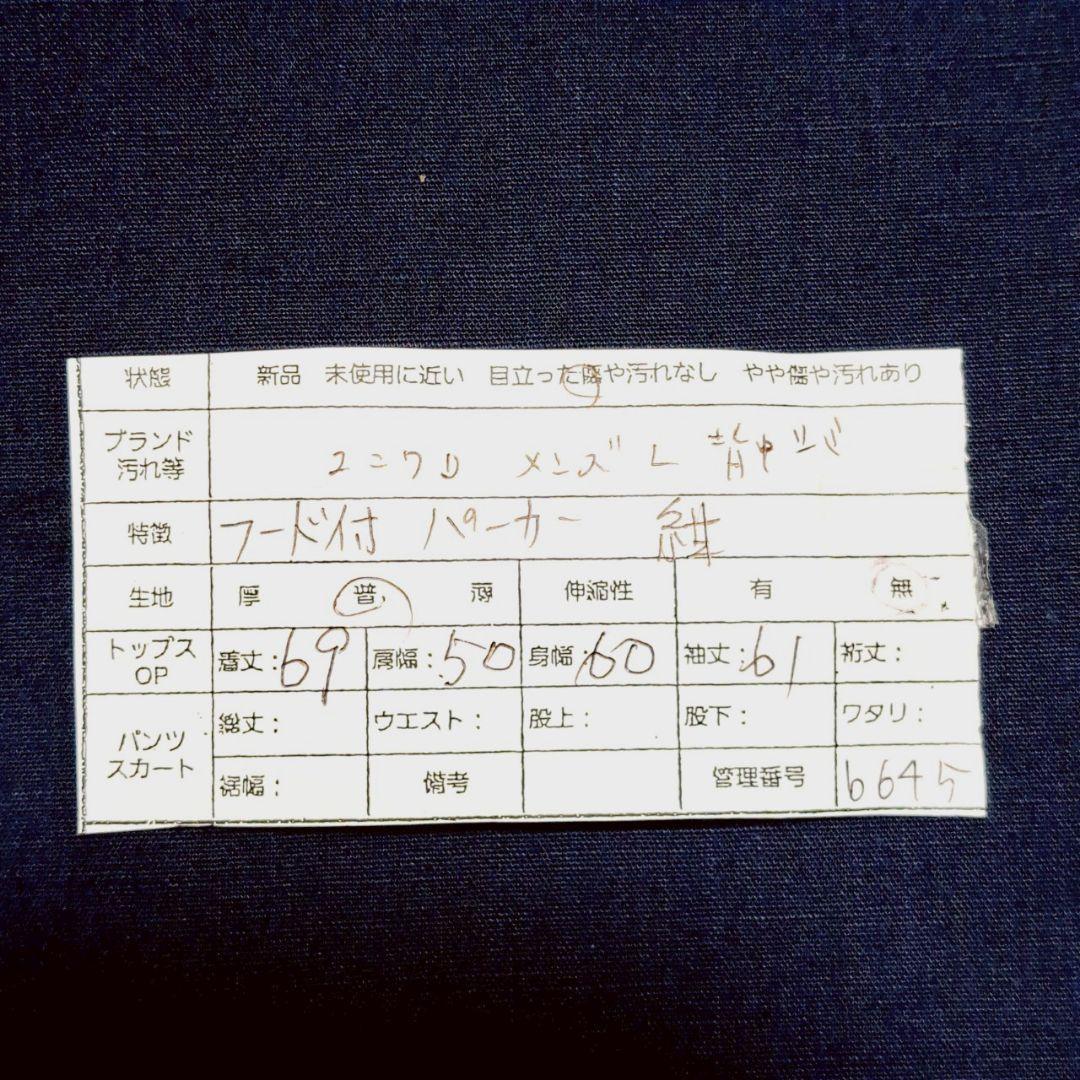 状態 新品 未使用に近い 目立った傷や汚れなし やや傷や汚れあり
ブランド
汚れ等 ユニクロ メンズ L
特徴 フード付 パーカー 紺
生地 厚 普 薄 伸縮性 有 無
トップス
OP 着丈:69 肩幅:50 身幅:60 袖丈:61 裄丈:
パンツ
スカート 総丈: ウエスト: 股上: 股下: ワタリ:
裾幅: 備考 管理番号 6645